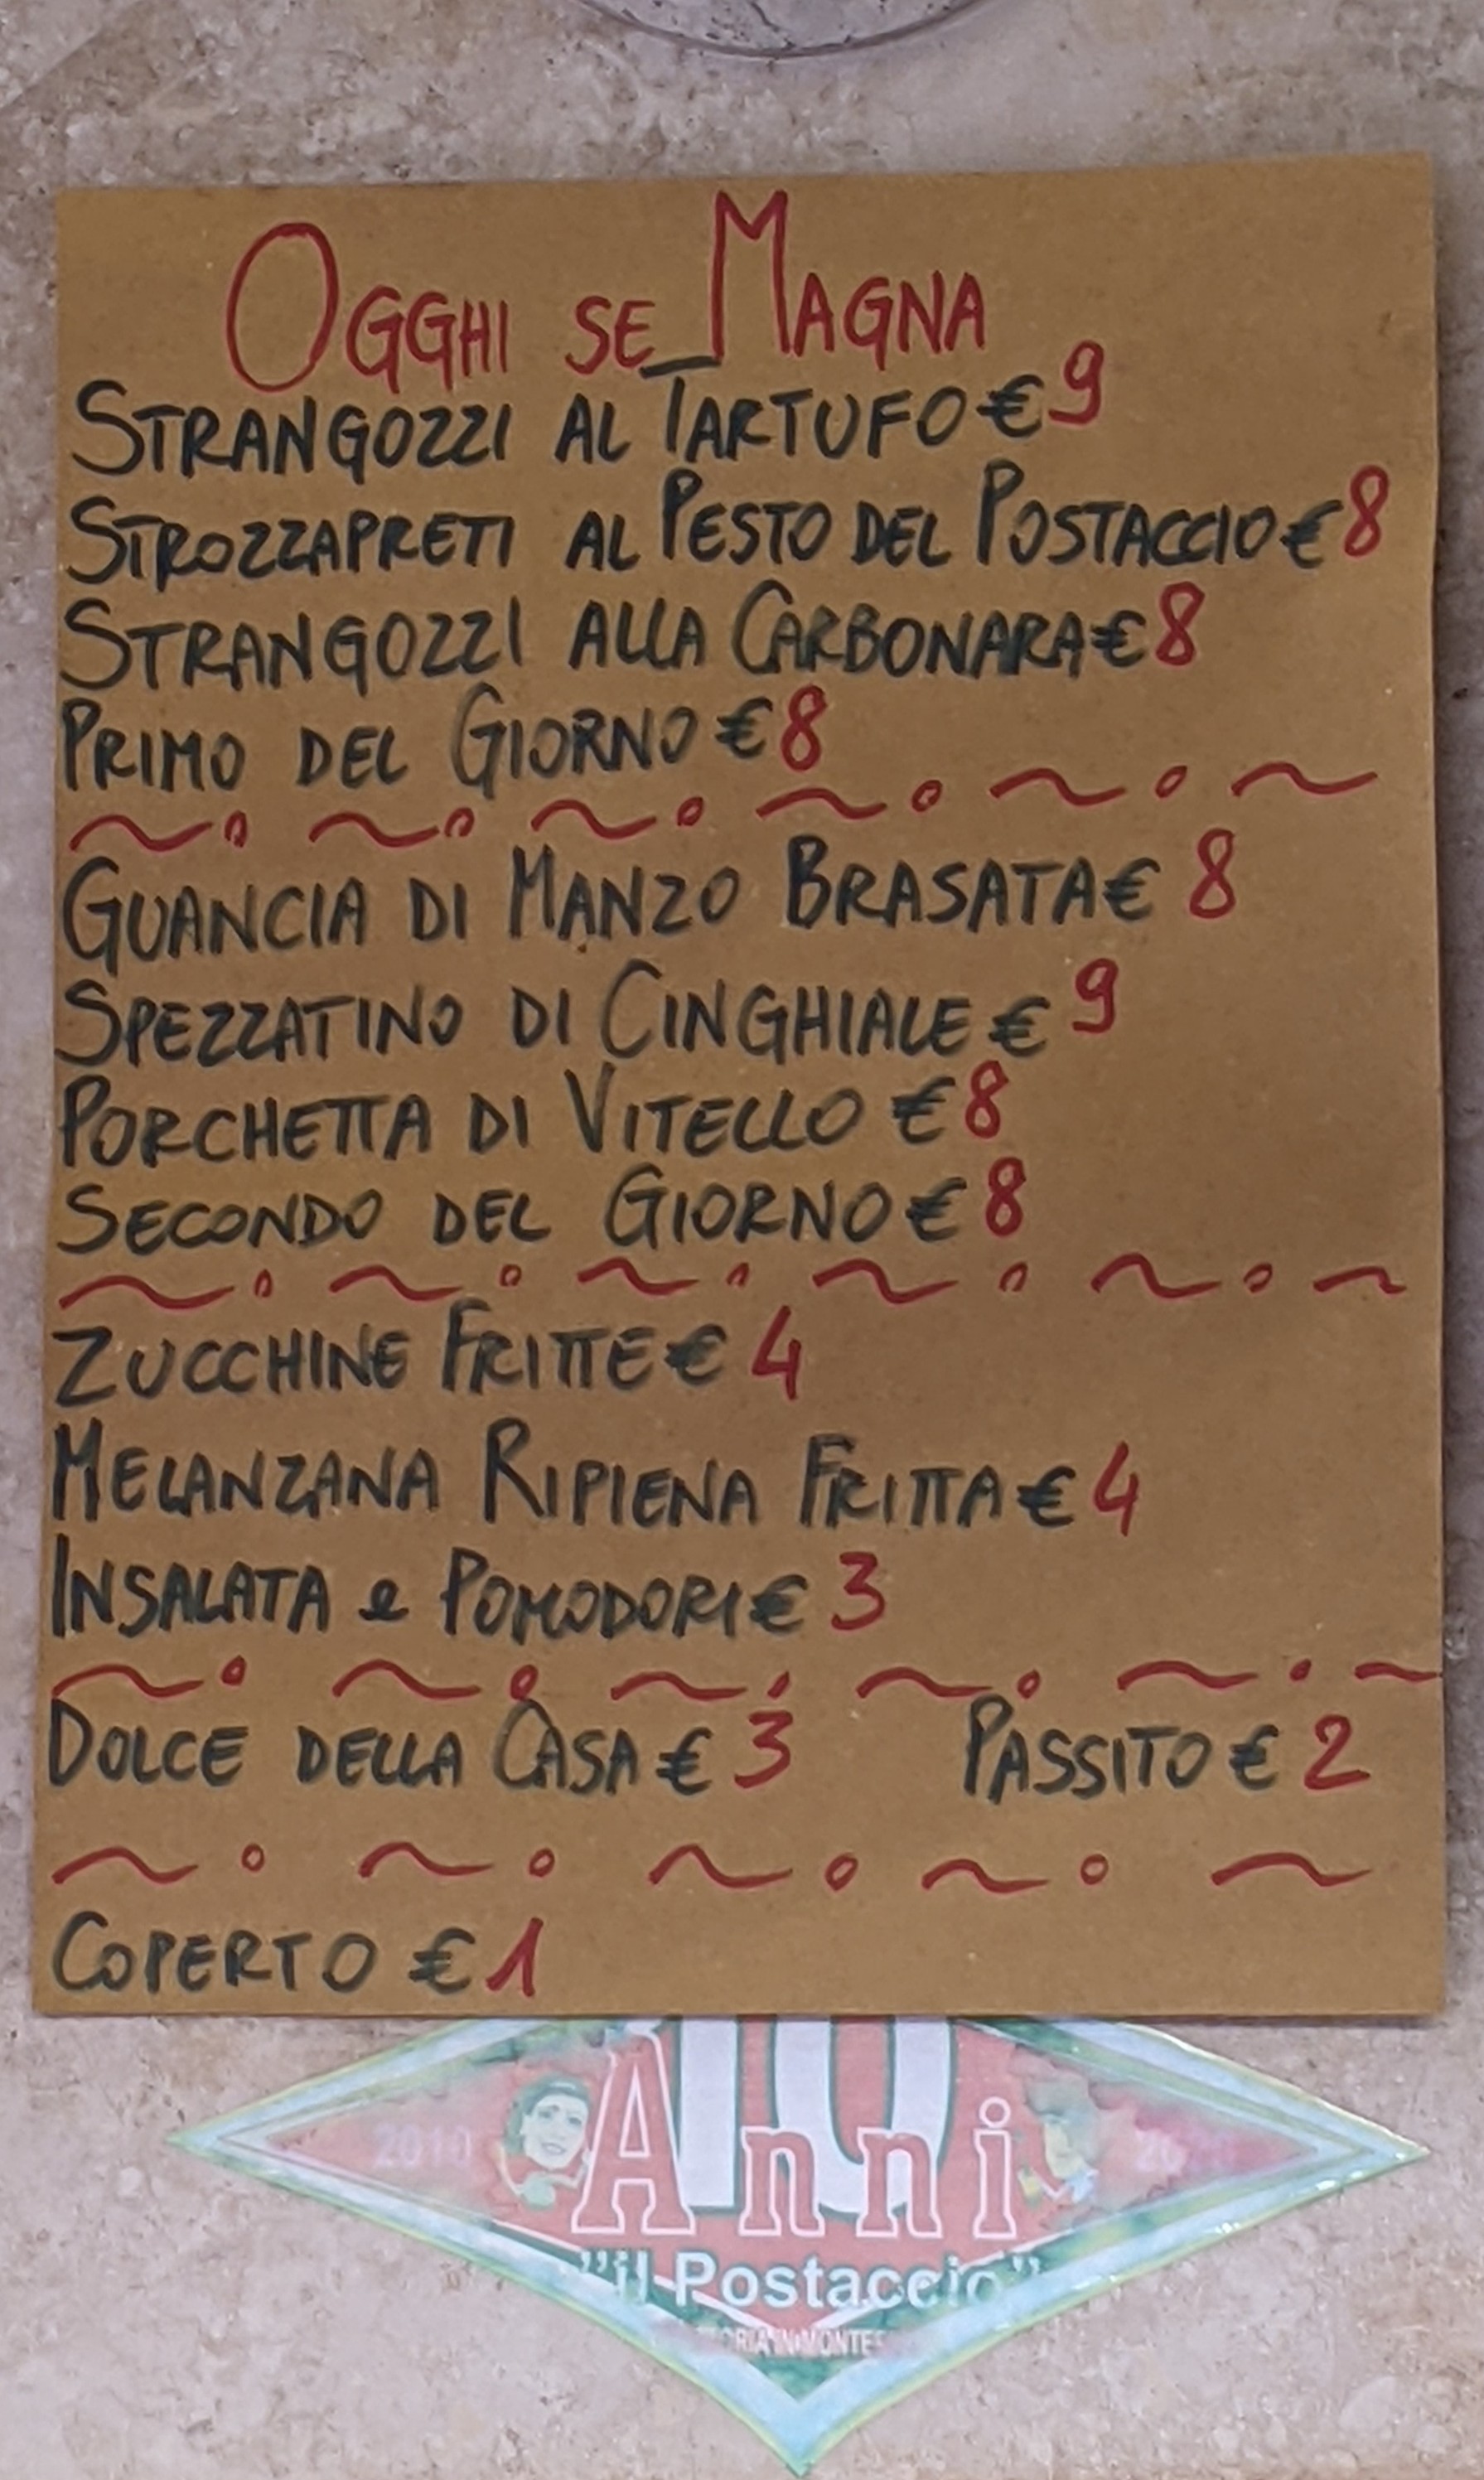 OGGHI SE MAGNA
STRANGOZZI AL TARTUFO € 9
STROZZAPRETI AL PESTO DEL POSTACCIO € 8
STRANGOZZI ALLA CARBONARA € 8
PRIMO DEL GIORNO € 8
GUANCIA DI MANZO BRASATA € 8
SPEZZATINO DI CINGHIALE € 9
PORCHETTA DI VITELLO € 8
SECONDO DEL GIORNO € 8
ZUCCHINE FRITTE € 4
MELANZANA RIPIENA FRITTA € 4
INSALATA e POMODORI € 3
DOLCE DELLA CASA € 3 PASSITO € 2
COPERTO € 1
10
Anni
2010
"il Postaccio"